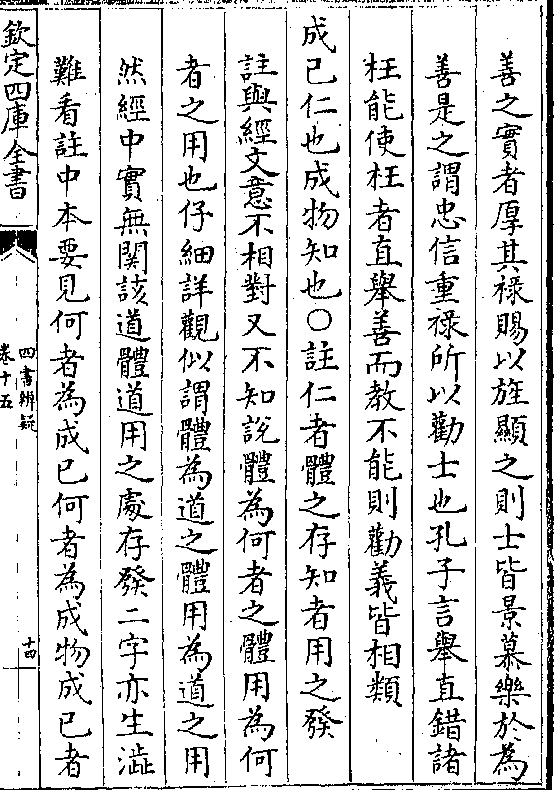 善之實者厚其祿賜以旌顯之則士皆景慕樂於為
善是之謂忠信重祿所以勸士也孔子言舉直錯諸
枉能使枉者直舉善而教不能則勸義皆相類
成已仁也成物知也○註仁者體之存知者用之發
註與經文意不相對又不知說體為何者之體用為何
者之用也仔細詳觀似謂體為道之體用為道之用
然經中實無関該道體道用之處存發二字亦生澁
難看註中本要見何者為成已何者為成物成已者
欽定四庫全書
四書辨疑
卷十五
十四